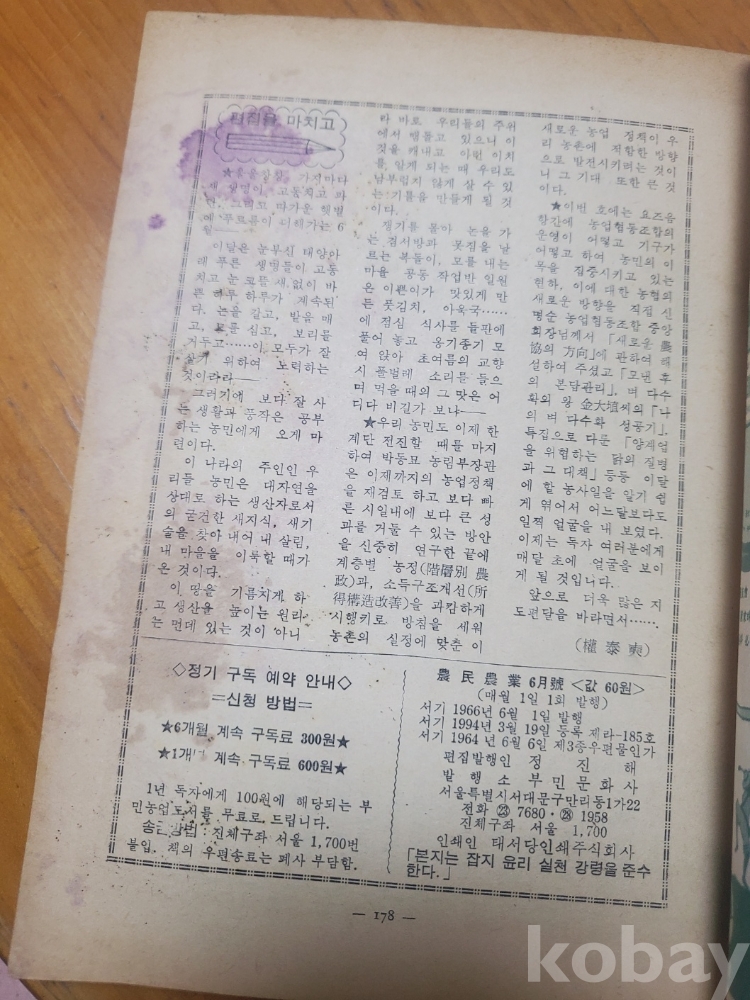 편집을 마치고
★웅웅창창, 가지마다
새 생명이 고동치고 파
란, 그리고 따가운 햇볕
에 푸르름이 더해가는 6
월──
이달은 눈부신 태양아
래 푸른 생명들이 고동
치고 눈코뜰새 없이 바
쁜 하루 하루가 계속된
다. 논을 갈고, 밭을 매
고, 모를 심고, 보리를
거두고……이 모두가 잘
살기 위하여 노력하는
것이라라──
그러기에 보다 잘 사
는 생활과 풍작은 공부
하는 농민에게 오게 마
련이다.
이 나라의 주인인 우
리들 농민은 대자연을
상대로 하는 생산자로서
의 굳건한 새지식, 새기
술을 찾아 내어 내 살림,
내 마을을 이룩할 때가
온 것이다.
이 땅을 기름지게 하
고 생산을 높이는 원리
는 먼데 있는 것이 아니
라 바로 우리들의 주위
에서 맴돌고 있으니 이
것을 캐내고 이런 이치
를 알게 되는 때 우리도
남부럽지 않게 살 수 있
는 기틀을 만들게 될 것
이다.
쟁기를 몰아 논을 가
는 김서방과 못짐을 날
르는 복돌이, 모를 내는
마을 공동 작업반 일원
은 이쁜이가 맛있게 만
든 풋김치, 아욱국……
에 점심 식사를 들판에
풀어 놓고 옹기종기 모
여 앉아 초여름의 교향
시 풀벌레 소리를 들으
며 먹을 때의 그 맛은 어
디다 비길가 보냐──
★우리 농민도 이제 한
계단 전진할 때를 마지
하여 박동묘 농림부장관
은 이제까지의 농업정책
을 재검토 하고 보다 빠
른 시일내에 보다 큰 성
과를 거둘 수 있는 방안
을 신중히 연구한 끝에
계층별 농정(階層別 農
政)과, 소득구조개선(所
得構造改善)을 과감하게
시행키로 방침을 세워
농촌의 실정에 맞춘 이
새로운 농업 정책이 우
리 농촌에 적합한 방향
으로 발전시키려는 것이
니 그 기대 또한 큰 것
이다.
★이번 호에는 요즈음
항간에 농업협동조합의
운영이 어떻고 기구가
어떻고 하여 농민의 이
목을 집중시키고 있는
현하, 이에 대한 농협의
새로운 방향을 직접 신
명순 농업협동조합 중앙
회장님께서 「새로운 農
協의 方向」에 관하여 해
설하여 주셨고 「모낸 후
의 본답관리」, 벼 다수
확의 왕 金大埴씨의 「나
의 벼 다수확 성공기」,
특집으로 다룬 「양계업
을 위협하는 닭의 질병
과 그 대책」 등등 이달
에 할 농사일을 알기 쉽
게 엮어서 어느달보다도
일찍 얼굴을 내 보였다.
이제는 독자 여러분에게
매달 초에 얼굴을 보이
게 될 것입니다.
앞으로 더욱 많은 지
도편달을 바라면서…….
(權 泰 奭)
◇정기 구독 예약 안내◇
=신청 방법=
★6개월 계속 구독료 300원★
★1개 계속 구독료 600원★
1년 독자에게 100원에 해당되는 부
민농업도서를 무료로 드립니다.
송금방법 : 진체구좌 서울 1,700번
불입. 책의 우편송료는 폐사 부담함.
農民農業 6月號 <값 60원>
(매월 1일 1회 발행)
서기 1966년 6월 1일 발행
서기 1994년 3월 19일 등록 제라-185호
서기 1964년 6월 6일 제3종우편물인가
편집발행인 정 진 해
발 행 소 부 민 문 화 사
서울특별시서대문구만리동1가22
전화 ㉓ 7680·㉘ 1958
진체구좌 서울 1,700
인쇄인 태서당인쇄주식회사
「본지는 잡지 윤리 실천 강령을 준수
한다.」
— 178 —
kobay